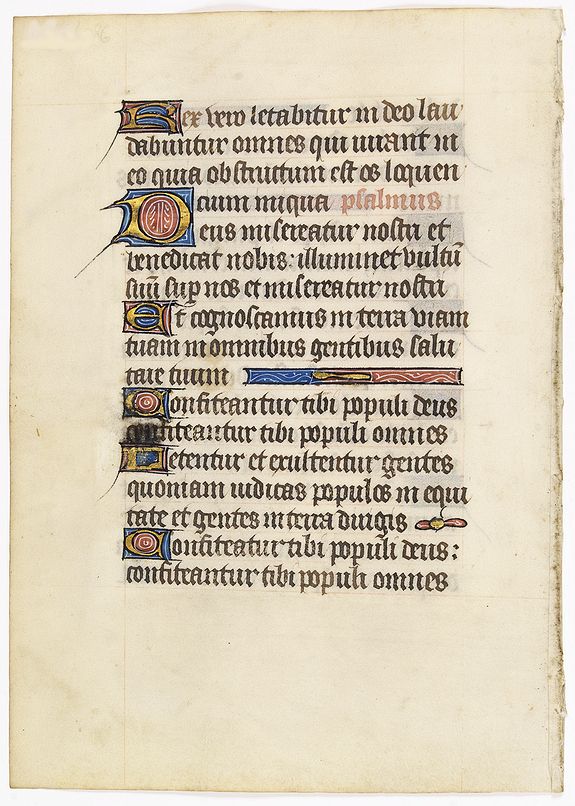 Rex vero letabitur in deo lau
dabuntur omnes qui iurant in
eo quia obstructum est os loquen
cium iniqua psalmus
Deus misereatur nostri et
benedicat nobis: illuminet vultū
suū sup nos et misereatur nostri
Et cognoscamus in terra viam
tuam in omnibus gentibus salu
tare tuum
Confiteantur tibi populi deus
confiteantur tibi populi omnes
Letentur et exultentur gentes
quoniam iudicas populos in equi
tate et gentes in terra dirigis
Confiteātur tibi populi deus:
confiteantur tibi populi omnes